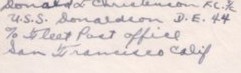 Donald L Christenson F.C. 2/c
U.S.S. Donaldson D.E. 44
% Fleet Post office
San Francisco Calif